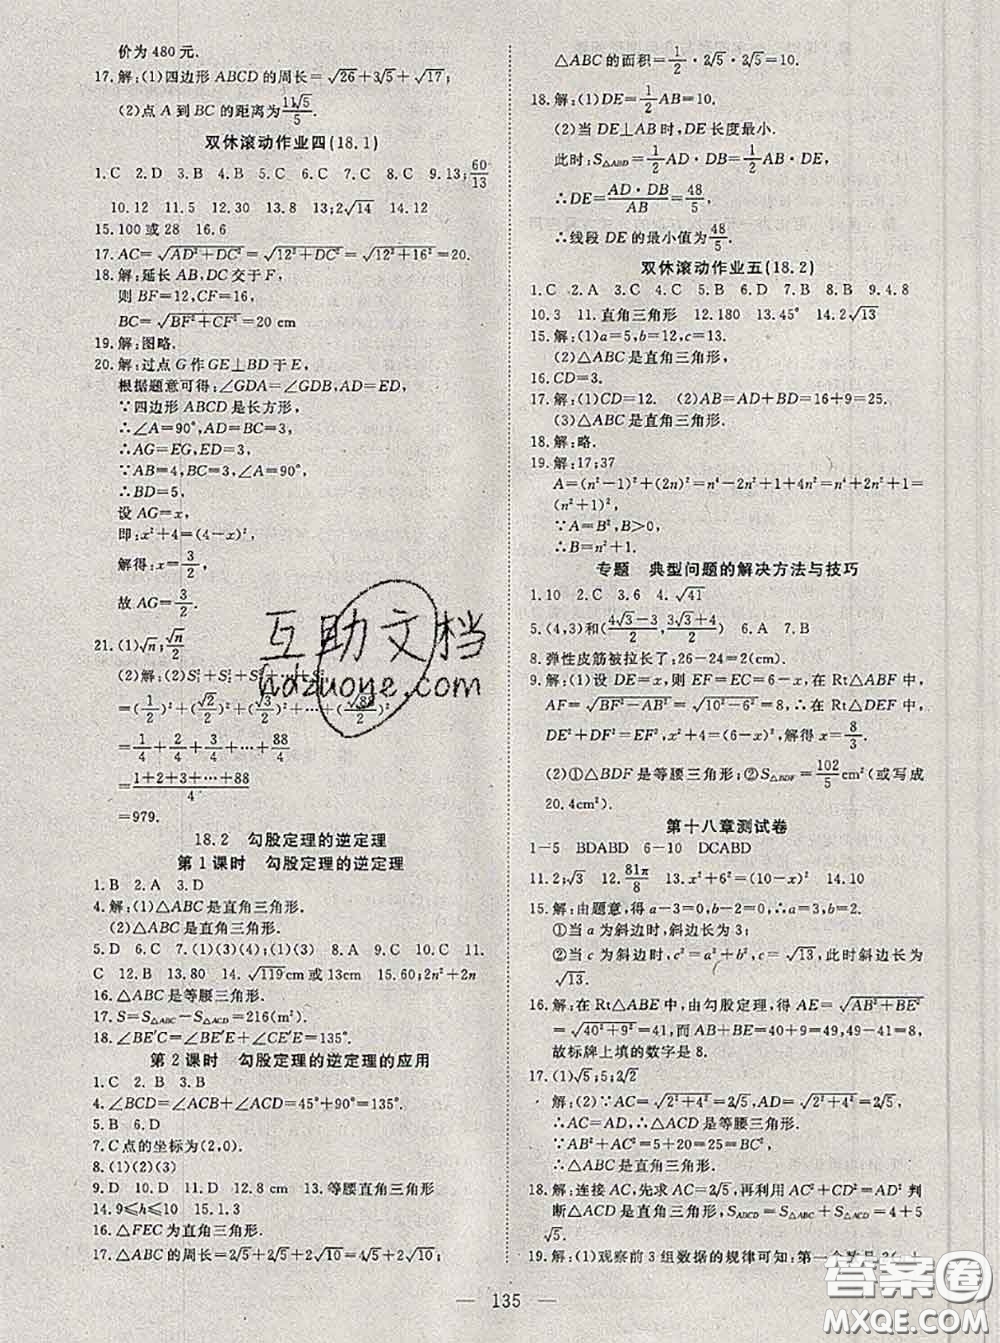 价为480元.
17.解:(1)四边形ABCD的周长=√26+3√5+√17;
(2)点A到BC的距离为11√5/5.
双休滚动作业四(18.1)
1.C 2.D 3.B 4.B 5.C 6.C 7.C 8.C 9.13;60/13
10.12 11.5 12.30 13.8 13;2√14 14.12
15.100或28 16.6
17.AC=√(AD²+DC²)=√(12²+12²)=√(12²+16²)=20.
18.解:延长AB,DC交于F,
则BF=12,CF=16,
BC=√(BF²+CF²)=20 cm
19.解:图略.
20.解:过点G作GE⊥BD于E,
根据题意可得:∠GDA=∠GDB,AD=ED,
∵四边形ABCD是长方形,
∴∠A=90°,AD=BC=3,
∴AG=EG,ED=3,
∵AB=4,BC=3,∠A=90°,
∴BD=5,
设AG=x,
即:x²+4=(4-x)²,
解得:x=3/2,
故AG=3/2.
21.(1)√n;√n/2
(2)解:(2)S₁²+S₂²+S
=(1/2)²+(√2/2)²+(√3/2)²+⋯+(√88/2)²
=1/4+2/4+3/4+⋯+88/4
=(1+2+3+⋯+88)/4
=979.
18.2 勾股定理的逆定理
第1课时 勾股定理的逆定理
1.B 2.A 3.D
4.解:(1)△ABC是直角三角形.
(2)△ABC是直角三角形.
5.D 6.C 7.(1)(3)(4);(1)(3) 8.A 9.C 10.C 11.
C 12.B 13.80 14.√119cm或13cm 15.60;2n²+2n
16.△ABC是等腰三角形.
17.S=S△ABC-S△ACD=216(m²).
18.∠BE′C=∠BE′E+∠CE′E=135°.
第2课时 勾股定理的逆定理的应用
1.C 2.B 3.B
4.∠BCD=∠ACB+∠ACD=45°+90°=135°.
5.B 6.D
7.C点的坐标为(2,0).
8.(1)(2)(3)
9.D 10.D 11.D 12.8cm 13.等腰直角三角形
14.9≤h≤10 15.1.3
16.△FEC为直角三角形.
17.△ABC的周长=2√5+2√5+2√10=4√5+2√10;
△ABC的面积=1/2·2√5·2√5=10.
18.解:(1)DE=1/2AB=10.
(2)当DE⊥AB时,DE长度最小.
此时:S△ABD=1/2AD·DB=1/2AB·DE,
∴DE=AD·DB/AB=48/5,
∴线段DE的最小值为48/5.
双休滚动作业五(18.2)
1.C 2.A 3.C 4.C 5.B 6.D 7.D 8.B 9.4.8
10.3 11.直角三角形 12.180 13.45° 14.2√13
15.解:(1)a=5,b=12,c=13.
(2)△ABC是直角三角形,
16.CD=3.
17.解:(1)CD=12. (2)AB=AD+BD=16+9=25.
(3)△ABC是直角三角形.
18.解:略.
19.解:17;37
A=(n²-1)²+(2n)²=n⁴-2n²+1+4n²=n⁴+2n²+1=
(n²+1)².
∵A=B²,B>0,
∴B=n²+1.
专题 典型问题的解决方法与技巧
1.10 2.C 3.6 4.√41
5.(4,3)和((4√3-3)/2,(3√3+4)/2) 6.A 7.B
8.弹性皮筋被拉长了:26-24=2(cm).
9.解:(1)设DE=x,则EF=EC=6-x,在Rt△ABF中,
AF=√(BF²-AB²)=√(10²-6²)=8,在Rt△DEF中,
DE²+DF²=EF²,x²+4=(6-x)²,解得x=8/3.
(2)①△BDF是等腰三角形;②S△BDF=102/5cm²(或写成
20.4cm²).
第十八章测试卷
1-5 BDABD 6-10 DCABD
11.2;√3 12.81π/8 13.x²+6²=(10-x)² 14.10
15.解:由题意,得a-3=0,b-2=0,a=3,b=2.
①当a为斜边时,斜边长为3;
②当c为斜边时,c²=a²+b²,c=√13,此时斜边长为
√13.
16.解:在Rt△ABE中,由勾股定理,得AE=√(AB²+BE²)
=√(40²+9²)=41,而AB+BE=40+9=49,49-41=8,
故标牌上填的数字是8.
17.(1)√5;5;2√2
解:(2)∵AC=√(2²+4²)=2√5,AD=√(2²+4²)=2√5,
∴AC=AD,∴△ACD是等腰三角形;
∵AB²+AC²=5+20=25=BC²,
∴△ABC是直角三角形.
18.解:连接AC,先求AC=2√5,再利用AC²+CD²=AD²判
断△ACD是直角三角形,SABCD=S△ABC+S△ACD=4+
5√5.
19.解:(1)观察前3组数据的规律可知:第一个数是
— 135 —
互助文档
hdzuoye.com
答案圈
MXQE.COM